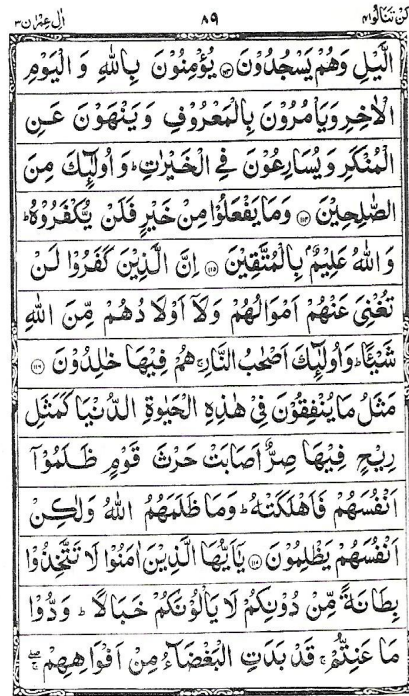 لن تنالوا ۴ ۸۹ اٰل عمرٰن ۳
الَّیۡلِ وَہُمۡ یَسۡجُدُوۡنَ ﴿۱۱۳﴾ یُؤۡمِنُوۡنَ بِاللّٰہِ وَ الۡیَوۡمِ
الۡاٰخِرِ وَیَاۡمُرُوۡنَ بِالۡمَعۡرُوۡفِ وَیَنۡہَوۡنَ عَنِ
الۡمُنۡکَرِ وَیُسَارِعُوۡنَ فِی الۡخَیۡرٰتِ ؕ وَاُولٰٓئِکَ مِنَ
الصّٰلِحِیۡنَ ﴿۱۱۴﴾ وَمَا یَفۡعَلُوۡا مِنۡ خَیۡرٍ فَلَنۡ یُّکۡفَرُوۡہُ ؕ
وَاللّٰہُ عَلِیۡمٌۢ بِالۡمُتَّقِیۡنَ ﴿۱۱۵﴾ اِنَّ الَّذِیۡنَ کَفَرُوۡا لَنۡ
تُغۡنِیَ عَنۡہُمۡ اَمۡوَالُہُمۡ وَلَاۤ اَوۡلَادُہُمۡ مِّنَ اللّٰہِ
شَیۡـًٔا ؕ وَاُولٰٓئِکَ اَصۡحٰبُ النَّارِ ۚ ہُمۡ فِیۡہَا خٰلِدُوۡنَ ﴿۱۱۶﴾
مَثَلُ مَا یُنۡفِقُوۡنَ فِیۡ ہٰذِہِ الۡحَیٰوۃِ الدُّنۡیَا کَمَثَلِ
رِیۡحٍ فِیۡہَا صِرٌّ اَصَابَتۡ حَرۡثَ قَوۡمٍ ظَلَمُوۡۤا
اَنۡفُسَہُمۡ فَاَہۡلَکَتۡہُ ؕ وَمَا ظَلَمَہُمُ اللّٰہُ وَلٰکِنۡ
اَنۡفُسَہُمۡ یَظۡلِمُوۡنَ ﴿۱۱۷﴾ یٰۤاَیُّہَا الَّذِیۡنَ اٰمَنُوۡا لَا تَتَّخِذُوۡا
بِطَانَۃً مِّنۡ دُوۡنِکُمۡ لَا یَاۡلُوۡنَکُمۡ خَبَالًا ؕ وَدُّوۡا
مَا عَنِتُّمۡ ۚ قَدۡ بَدَتِ الۡبَغۡضَآءُ مِنۡ اَفۡوَاہِہِمۡ ۚۖ